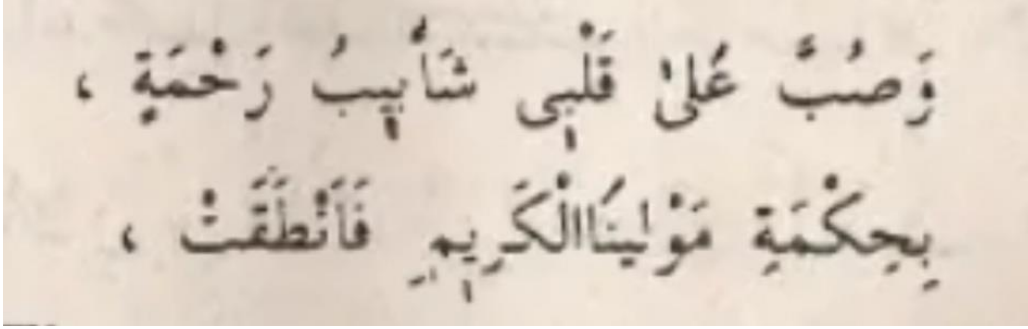 وَصُبَّ عَلٰى قَلْبٖى شَأٰبٖيبُ رَحْمَةٍ ،
بِحِكْمَةِ مَوْلٰينَاالْكَرٖيمِ فَاَنْطَقَتْ ،